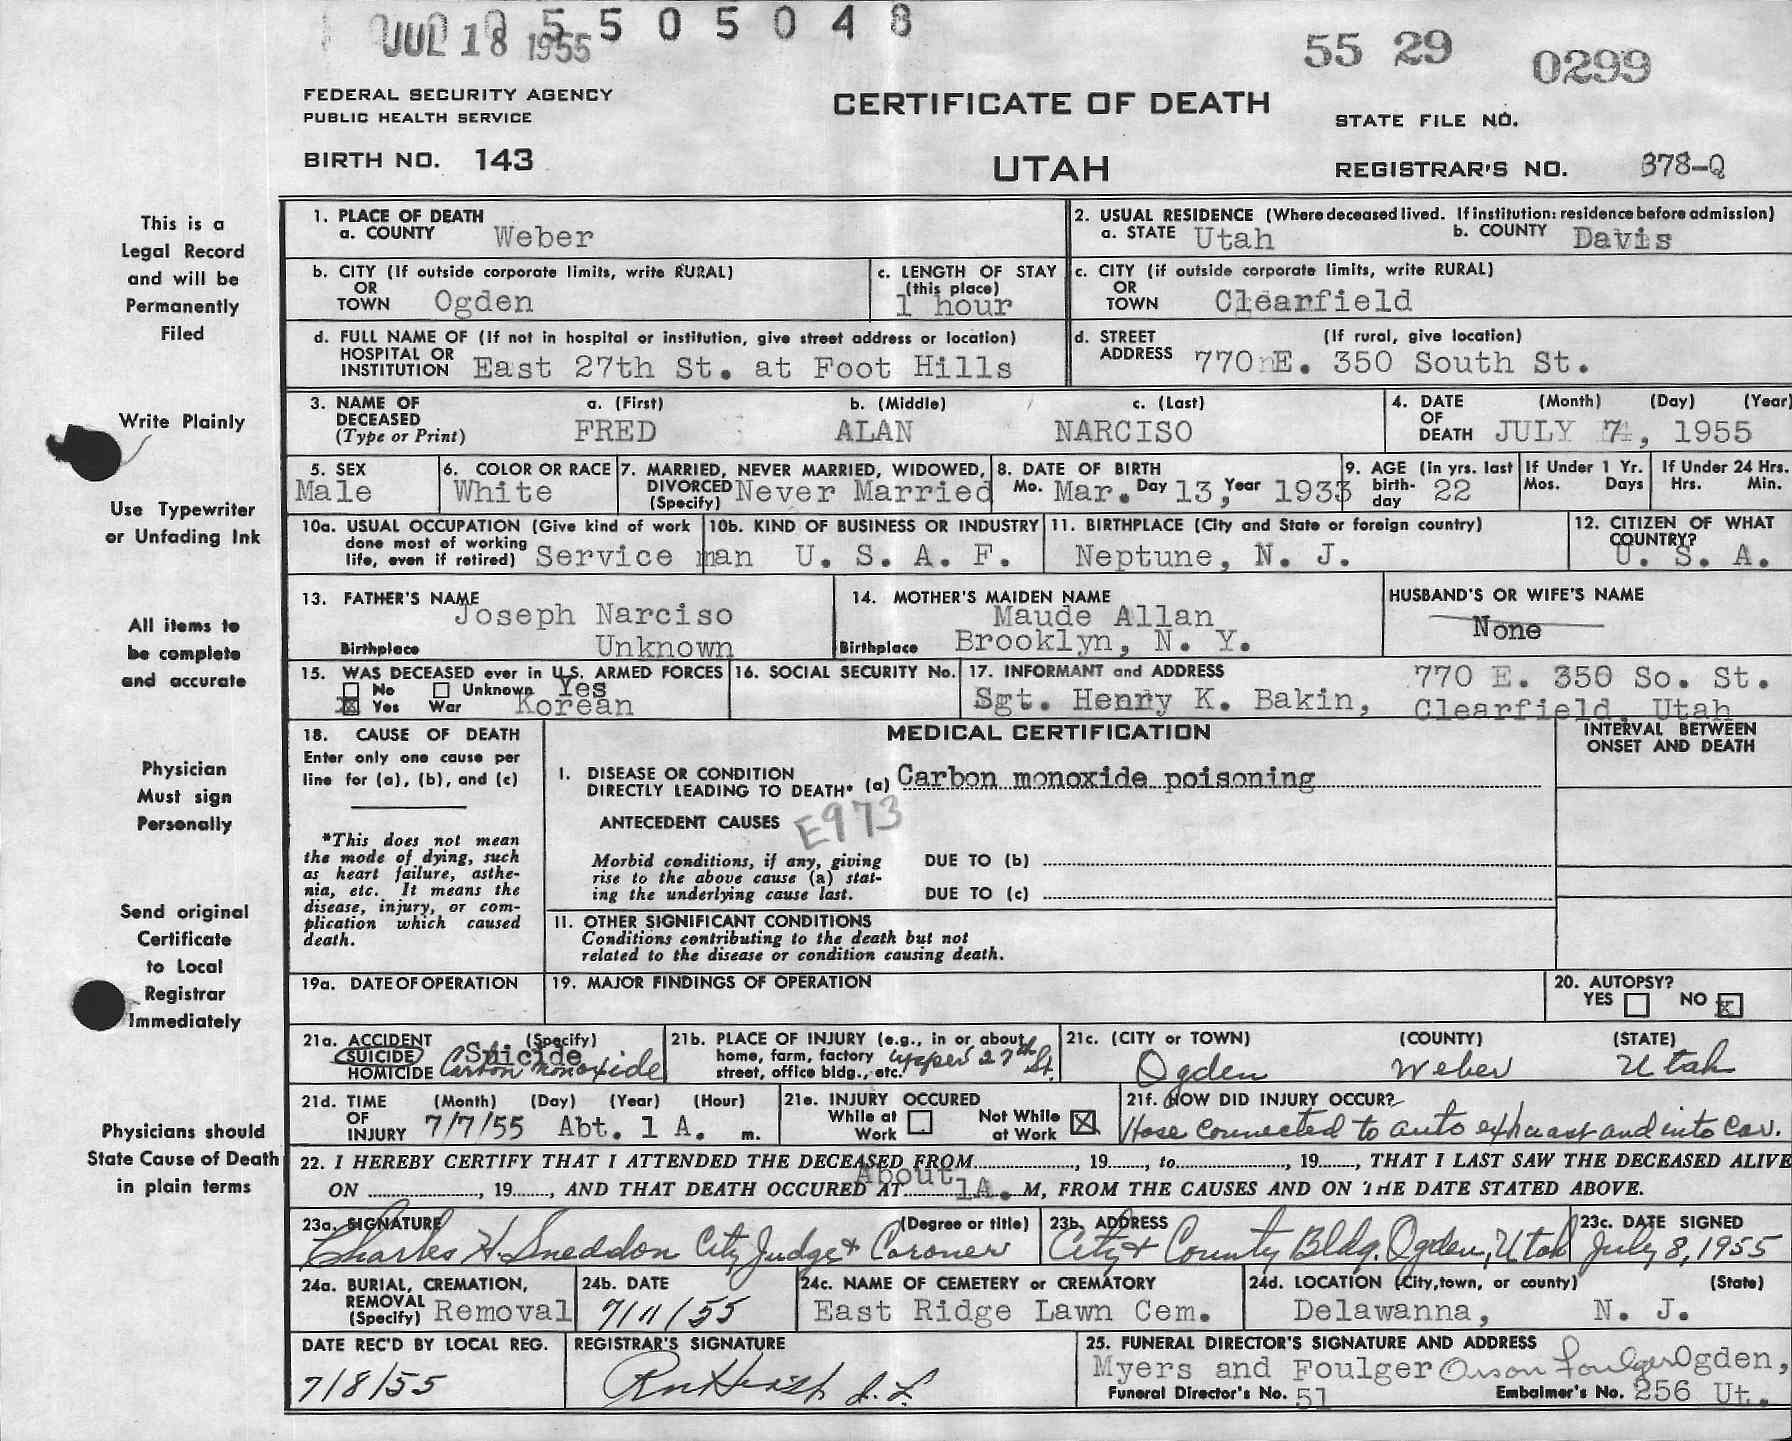 JUL 18 1955 5 5 0 5 0 4 8
55 29 0299
FEDERAL SECURITY AGENCY
PUBLIC HEALTH SERVICE
CERTIFICATE OF DEATH
STATE FILE NO.
BIRTH NO. 143
UTAH
REGISTRAR'S NO. 378-Q
This is a
Legal Record
and will be
Permanently
Filed
Write Plainly
Use Typewriter
or Unfading Ink
All items to
be complete
and accurate
Physician
Must sign
Personally
Send original
Certificate
to Local
Registrar
Immediately
Physicians should
State Cause of Death
in plain terms
1. PLACE OF DEATH
a. COUNTY Weber
2. USUAL RESIDENCE (Where deceased lived. If institution: residence before admission)
a. STATE Utah b. COUNTY Davis
b. CITY (If outside corporate limits, write RURAL)
OR
TOWN Ogden
c. LENGTH OF STAY
(this place)
1 hour
c. CITY (if outside corporate limits, write RURAL)
OR
TOWN Clearfield
d. FULL NAME OF (If not in hospital or institution, give street address or location)
HOSPITAL OR
INSTITUTION East 27th St. at Foot Hills
d. STREET (If rural, give location)
ADDRESS 770 E. 350 South St.
3. NAME OF a. (First) b. (Middle) c. (Last)
DECEASED
(Type or Print) FRED ALAN NARCISO
4. DATE (Month) (Day) (Year)
OF
DEATH JULY 7, 1955
5. SEX
Male
6. COLOR OR RACE
White
7. MARRIED, NEVER MARRIED, WIDOWED,
DIVORCED Never Married
(Specify)
8. DATE OF BIRTH
Mo. Mar. Day 13, Year 1933
9. AGE (in yrs. last
birth- 22
day
If Under 1 Yr.
Mos. Days
If Under 24 Hrs.
Hrs. Min.
10a. USUAL OCCUPATION (Give kind of work
done most of working
life, even if retired) Service man
10b. KIND OF BUSINESS OR INDUSTRY
U. S. A. F.
11. BIRTHPLACE (City and State or foreign country)
Neptune, N. J.
12. CITIZEN OF WHAT
COUNTRY?
U. S. A.
13. FATHER'S NAME
Joseph Narciso
Birthplace Unknown
14. MOTHER'S MAIDEN NAME
Maude Allan
Birthplace Brooklyn, N. Y.
HUSBAND'S OR WIFE'S NAME
None
15. WAS DECEASED ever in U.S. ARMED FORCES
No Unknown Yes
Yes War Korean
16. SOCIAL SECURITY No.
17. INFORMANT and ADDRESS 770 E. 350 So. St.
Sgt. Henry K. Bakin, Clearfield, Utah
18. CAUSE OF DEATH
Enter only one cause per
line for (a), (b), and (c)
*This does not mean
the mode of dying, such
as heart failure, asthe-
nia, etc. It means the
disease, injury, or com-
plication which caused
death.
MEDICAL CERTIFICATION
INTERVAL BETWEEN
ONSET AND DEATH
I. DISEASE OR CONDITION
DIRECTLY LEADING TO DEATH* (a) Carbon monoxide poisoning
ANTECEDENT CAUSES E973
Morbid conditions, if any, giving
rise to the above cause (a) stat-
ing the underlying cause last.
DUE TO (b)
DUE TO (c)
II. OTHER SIGNIFICANT CONDITIONS
Conditions contributing to the death but not
related to the disease or condition causing death.
19a. DATE OF OPERATION
19. MAJOR FINDINGS OF OPERATION
20. AUTOPSY?
YES NO x
21a. ACCIDENT (Specify)
SUICIDE Suicide
HOMICIDE Carbon monoxide
21b. PLACE OF INJURY (e.g., in or about
home, farm, factory
street, office bldg., etc. upper 27th St.
21c. (CITY or TOWN) (COUNTY) (STATE)
Ogden Weber Utah
21d. TIME (Month) (Day) (Year) (Hour)
OF
INJURY 7/7/55 Abt. 1 A. m.
21e. INJURY OCCURED
While at Not While
Work at Work X
21f. HOW DID INJURY OCCUR?
Hose connected to auto exhaust and into car.
22. I HEREBY CERTIFY THAT I ATTENDED THE DECEASED FROM, 19, to, 19, THAT I LAST SAW THE DECEASED ALIVE
ON, 19, AND THAT DEATH OCCURED AT About 1A. M, FROM THE CAUSES AND ON THE DATE STATED ABOVE.
23a. SIGNATURE (Degree or title)
Charles H. Sneddon City Judge & Coroner
23b. ADDRESS
City & County Bldg. Ogden, Utah
23c. DATE SIGNED
July 8, 1955
24a. BURIAL, CREMATION,
REMOVAL
(Specify) Removal
24b. DATE
7/11/55
24c. NAME OF CEMETERY or CREMATORY
East Ridge Lawn Cem.
24d. LOCATION (City, town, or county) (State)
Delawanna, N. J.
DATE REC'D BY LOCAL REG.
7/8/55
REGISTRAR'S SIGNATURE
25. FUNERAL DIRECTOR'S SIGNATURE AND ADDRESS
Myers and Foulger Orson Foulger Ogden,
Funeral Director's No. 51 Embalmer's No. 256 Ut.